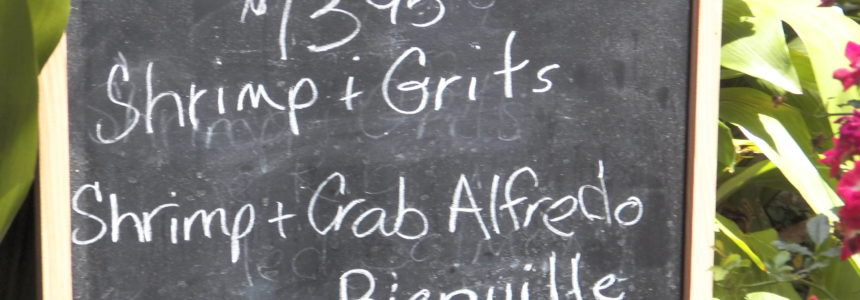 13.95
Shrimp + Grits
Shrimp + Crab Alfredo
Bienville